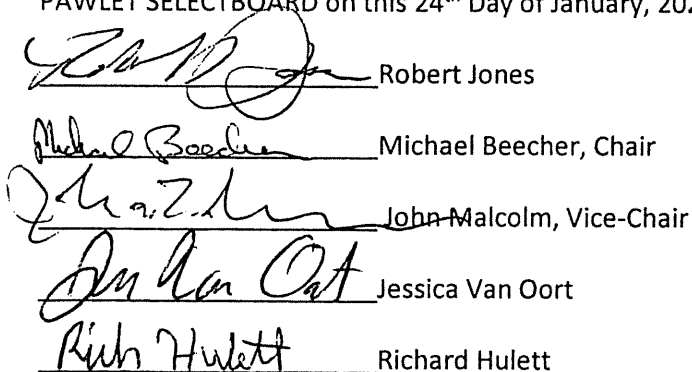 PAWLET SELECTBOARD on this 24th Day of January, 202
Robert Jones
Michael Beecher Michael Beecher, Chair
John Malcolm, Vice-Chair
Jessica Van Oort
Rich Hulett Richard Hulett